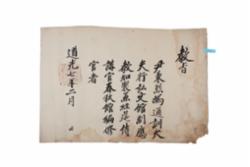 敎旨
尹秉烈爲通訓大
夫行弘文館副應
敎知製敎兼經筵侍
講官春秋館編修
官者
道光七年二月　日